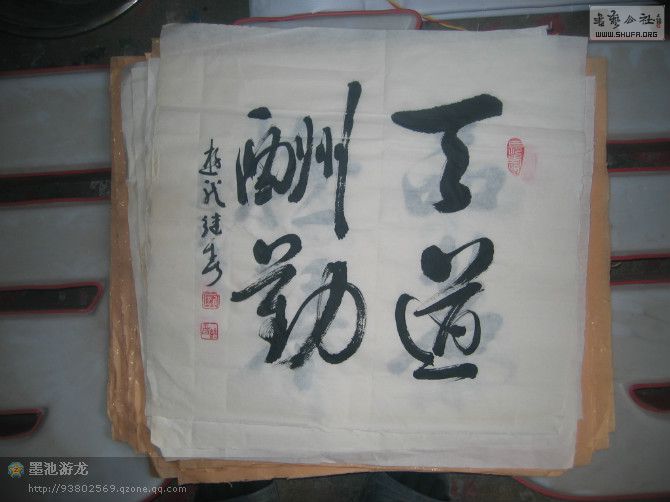 天道
酬勤
游龙继春
书艺公社
WWW.SHUFA.ORG
墨池游龙
http://93802569.qzone.qq.com